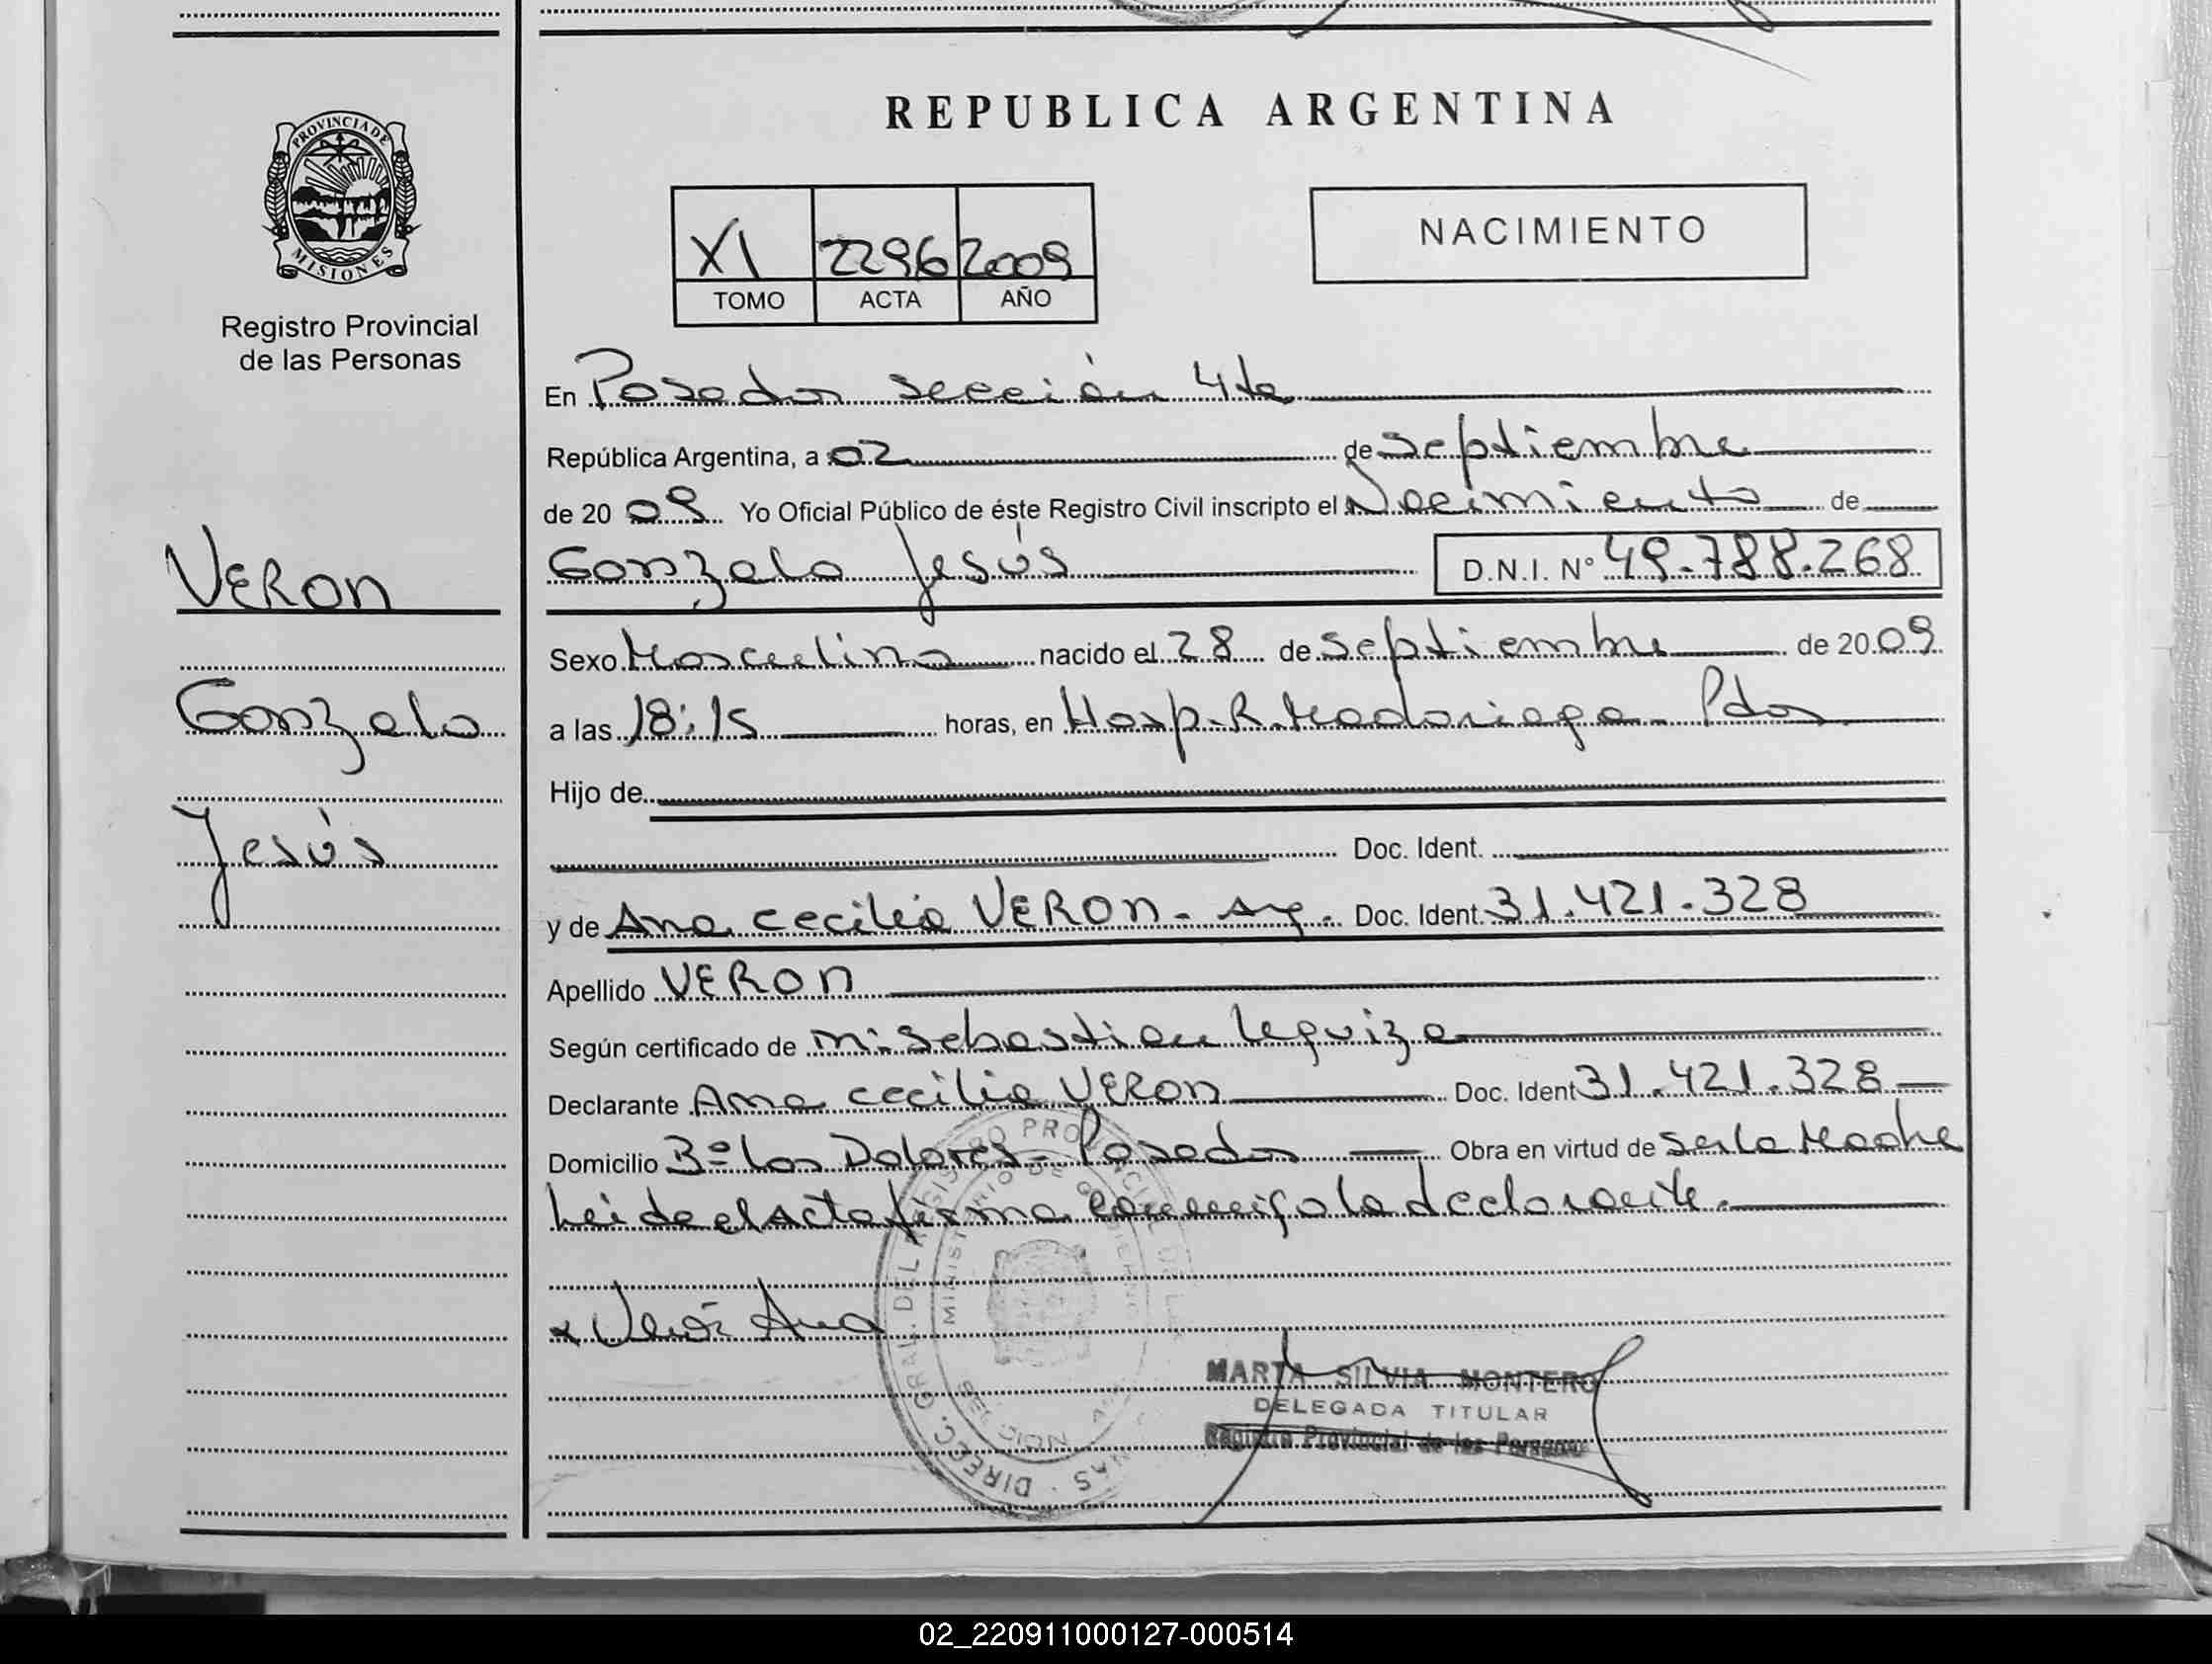 REPUBLICA ARGENTINA
PROVINCIA DE
MISIONES
Registro Provincial
de las Personas
XI 2296 2009
TOMO ACTA AÑO
NACIMIENTO
En Posadas sección 4ta
República Argentina, a 02 de septiembre
de 20 09 Yo Oficial Público de éste Registro Civil inscripto el Nacimiento de
Gonzalo Jesús D.N.I. N° 49.788.268
VERON
Gonzalo
Jesús
Sexo Masculino nacido el 28 de septiembre de 20 09
a las 18:15 horas, en Hosp. R. Madariaga - Pdas
Hijo de
Doc. Ident.
y de Ana cecilia VERON - Arg. Doc. Ident. 31.421.328
Apellido VERON
Según certificado de m: Sebastian Leguiza
Declarante Ana cecilia VERON Doc. Ident 31.421.328
Domicilio Bº Los Dolores - Posadas Obra en virtud de ser la Madre
Leida el Acta firma conmigo la declarante.
x Verón Ana
DIREC. GRAL. DEL REGISTRO PROVINCIAL DE LAS
MINISTERIO DE GOBIERNO
MARTA SILVIA MONTERO
DELEGADA TITULAR
Registro Provincial de las Personas
02_220911000127-000514